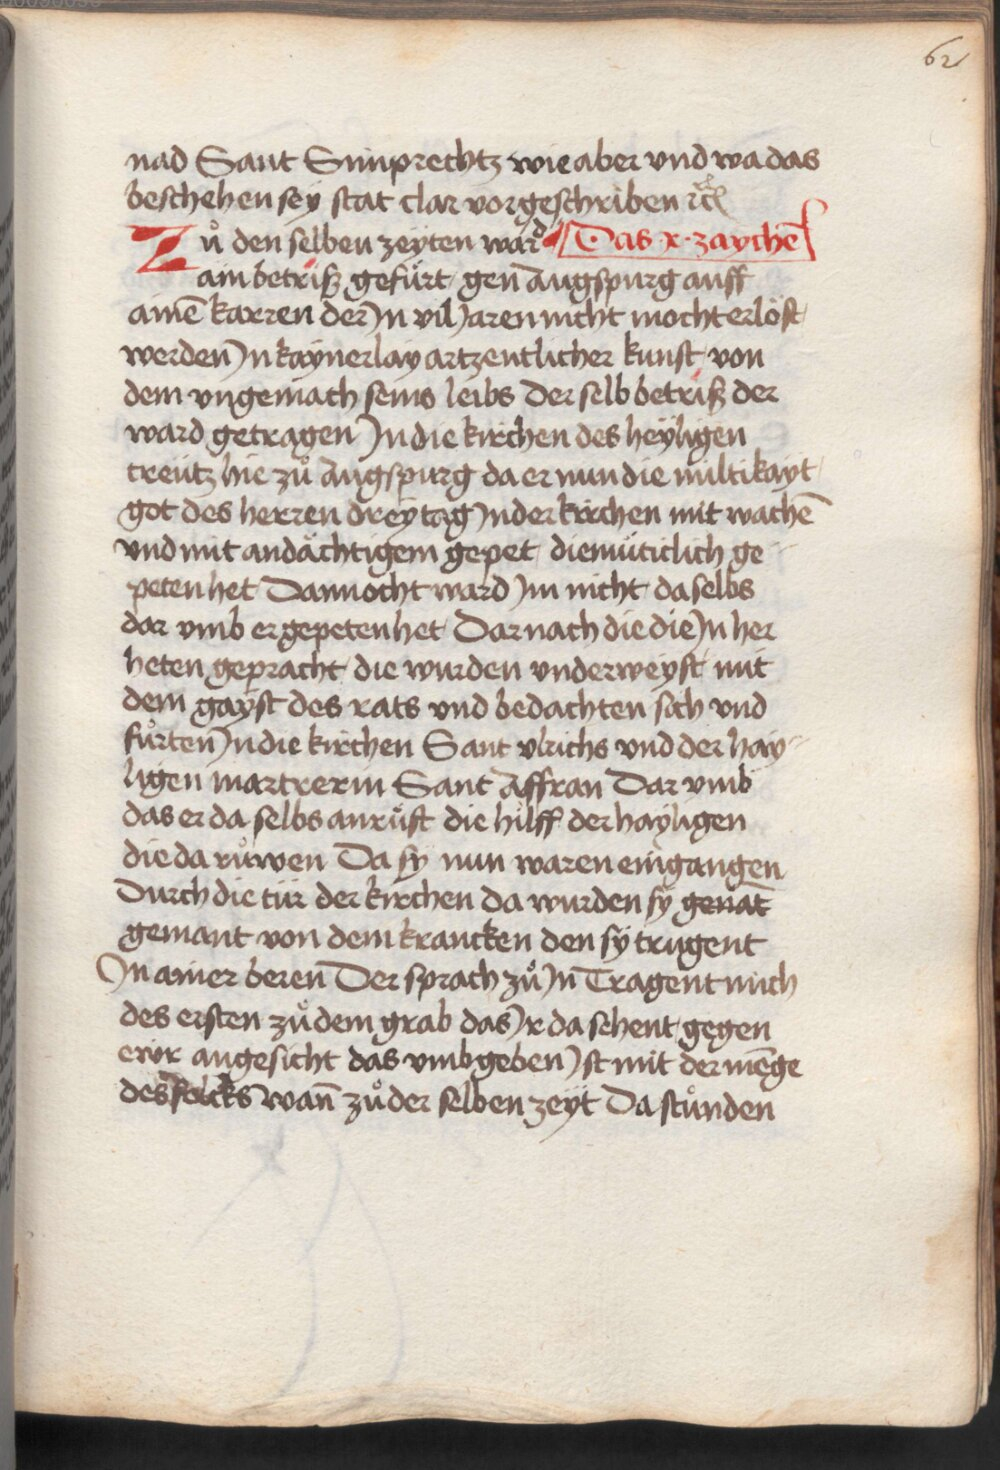 62
nad Sant Simprechtz wie aber vnd wa das
beschehen sey stat clar vorgeschriben ꝛc̃
Zů den selben zeyten ward Das ·x· zaychē
ain betriß gefürt gen Augspurg auff
ainē karren der Jn vil Jaren nicht mocht erlöst
werden Jn kaynerlay artzentlicher kunst von
dem vngemach seins leibs Der selb betriß der
ward getragen Jn die kirchen des heyligen
creütz hie zů Augspurg da er nun die miltikayt
got des herren drey tag Jn der kirchen mit wachē
vnd mit andächtigem gepet diemüticlich ge
peten het Dannocht ward Jm nicht daselbs
dar vmb er gepeten het Dar nach die die Jn her
heten gepracht die wurden vnderweyst mit
dem gayst des rats vnd bedachten sich vnd
fůrten Jn die kirchen Sant vlrichs vnd der hay
ligen martrerin Sant Affran Dar vmb
das er da selbs anrůft die hilff der hayligen
die da růwen Da sy nun waren eingangen
Durch die tür der kirchen da wurden sy genāt
gemant von dem krancken den sy trugent
Jn ainer beren Der sprach zů Jn̄ Tragent mich
des ersten zů dem grab das Jr da sehent gegen
ewr angesicht das vmbgeben Jst mit der mēge
des folcks wan̄ zů der selben zeyt Da stůnden